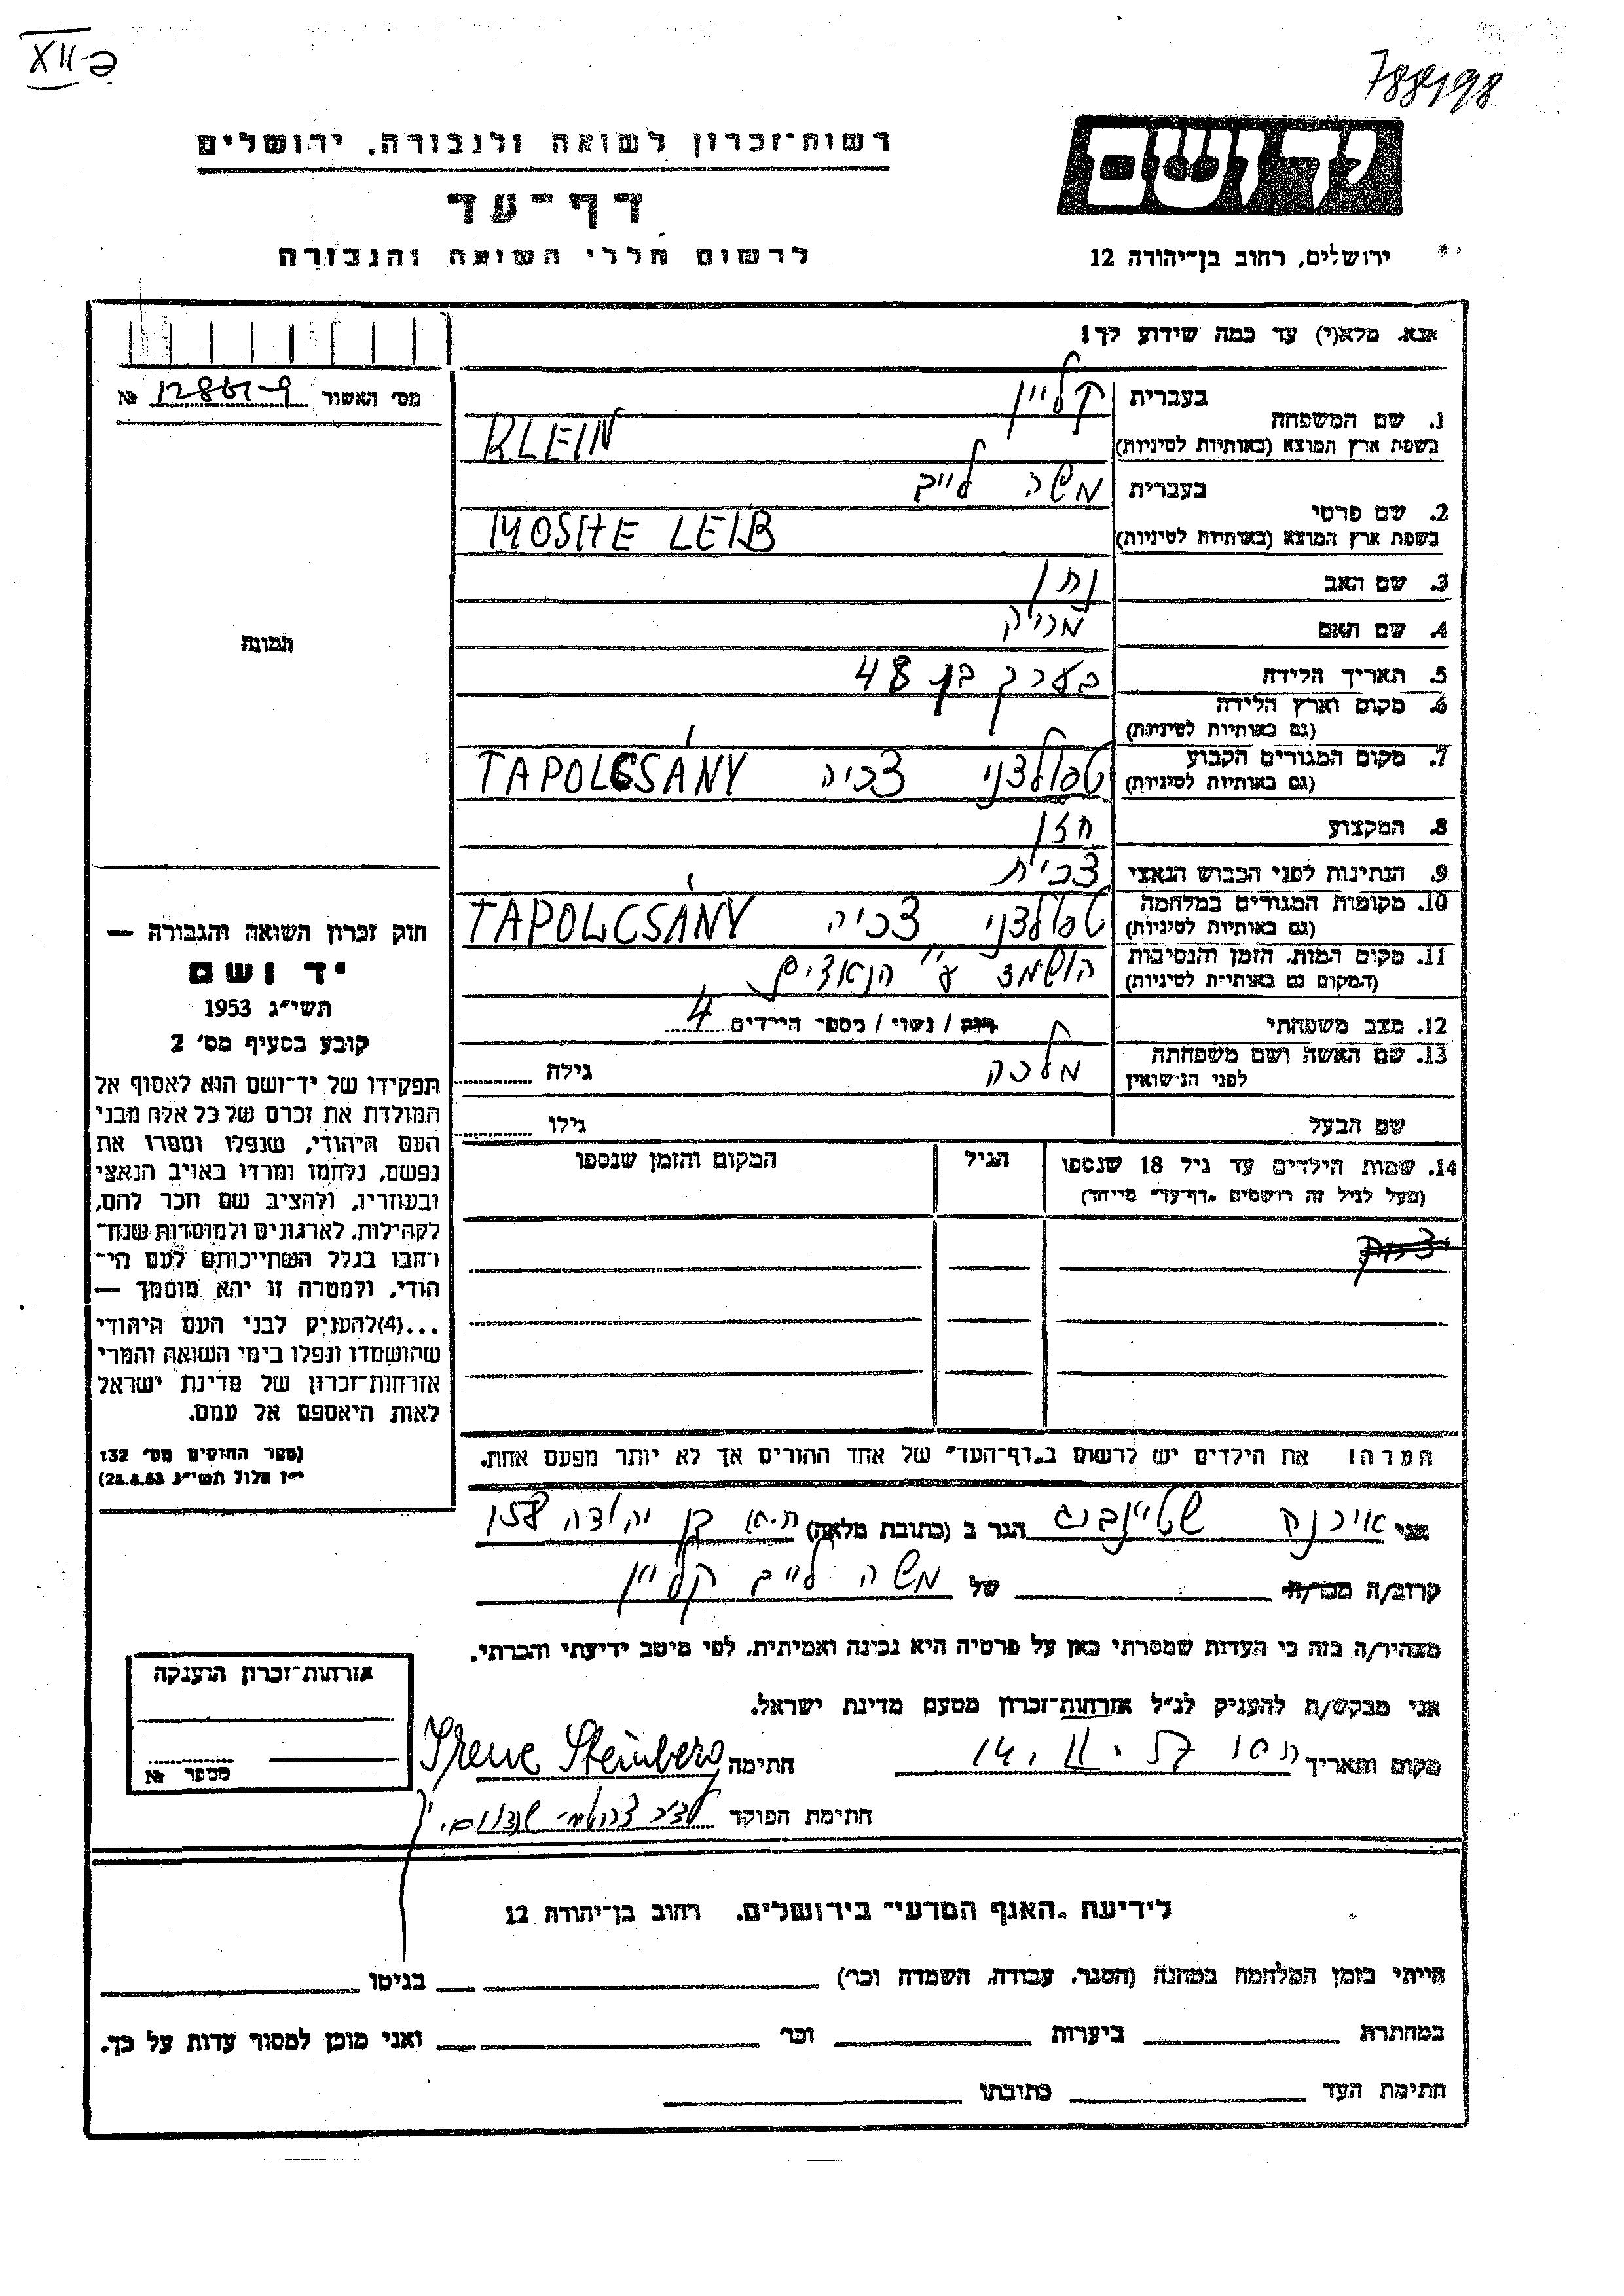 XII-כ
788198
יד ושם
ירושלים, רחוב בן־יהודה 12
רשות־זכרון לשואה ולגבורה, ירושלים
דף־עד
לרשום חללי השואה והגבורה
אנא, מלא(י) עד כמה שידוע לך!
1. שם המשפחה
בעברית קליין
בשפת ארץ המוצא (באותיות לטיניות) KLEIN
2. שם פרטי
בעברית משה לייב
בשפת ארץ המוצא (באותיות לטיניות) MOSHE LEIB
3. שם האב נתן
4. שם האם
5. תאריך הלידה בערך בן 48
6. מקום וארץ הלידה
(גם באותיות לטיניות)
7. מקום המגורים הקבוע טפולצני צכיה TAPOLCSÁNY
(גם באותיות לטיניות)
8. המקצוע חזן
9. הנתינות לפני הכבוש הנאצי צכית
10. מקומות המגורים במלחמה טפולצני צכיה TAPOLCSÁNY
(גם באותיות לטיניות)
11. מקום המות, הזמן והנסיבות הושמד ע"י הנאצים
(המקום גם באותיות לטיניות)
12. מצב משפחתי רווק / נשוי / מספר הילדים 4
13. שם האשה ושם משפחתה מלכה גילה
לפני הנישואין
שם הבעל גילו
14. שמות הילדים עד גיל 18 שנספו הגיל המקום והזמן שנספו
(מעל לגיל זה רושמים „דף־עד" מייחד)
יצחק
הערה! את הילדים יש לרשום ב„דף־העד" של אחד ההורים אך לא יותר מפעם אחת.
מס' האשור 9-12861 №
תמונה
חוק זכרון השואה והגבורה —
יד ושם
תשי"ג 1953
קובע בסעיף מס' 2
תפקידו של יד־ושם הוא לאסוף אל
המולדת את זכרם של כל אלה מבני
העם היהודי, שנפלו ומסרו את
נפשם, נלחמו ומרדו באויב הנאצי
ובעוזריו, ולהציב שם וזכר להם,
לקהילות, לארגונים ולמוסדות שנח־
רחבו בגלל השתייכותם לעם הי־
הודי, ולמטרה זו יהא מוסמך —
...(4)להעניק לבני העם היהודי
שהושמדו ונפלו בימי השואה והמרי
אזרחות־זכרון של מדינת ישראל
לאות היאספם אל עמם.
(ספר החוקים מס' 132
י"ז אלול תשי"ג 28.8.53)
אני אירנה שטיינברג הגר ב (כתובת מלאה) ת.א בן יהודה 158
קרוב/ה מכר/ה של משה לייב קליין
מצהיר/ה בזה כי העדות שמסרתי כאן על פרטיה היא נכונה ואמיתית, לפי מיטב ידיעתי והכרתי.
אני מבקש/ת להעניק לנ"ל אזרחות־זכרון מטעם מדינת ישראל.
מקום ותאריך 14. II. 57 חתימה Irene Steinberg
חתימת הפוקד
אזרחות־זכרון הוענקה
מספר №
לידיעת „האגף המדעי" בירושלים. רחוב בן־יהודה 12
הייתי בזמן המלחמה במחנה (הסגר, עבודה, השמדה וכו') בגיטו
במחתרת ביערות וכו' ואני מוכן למסור עדות על כך.
חתימת העד כתובתו